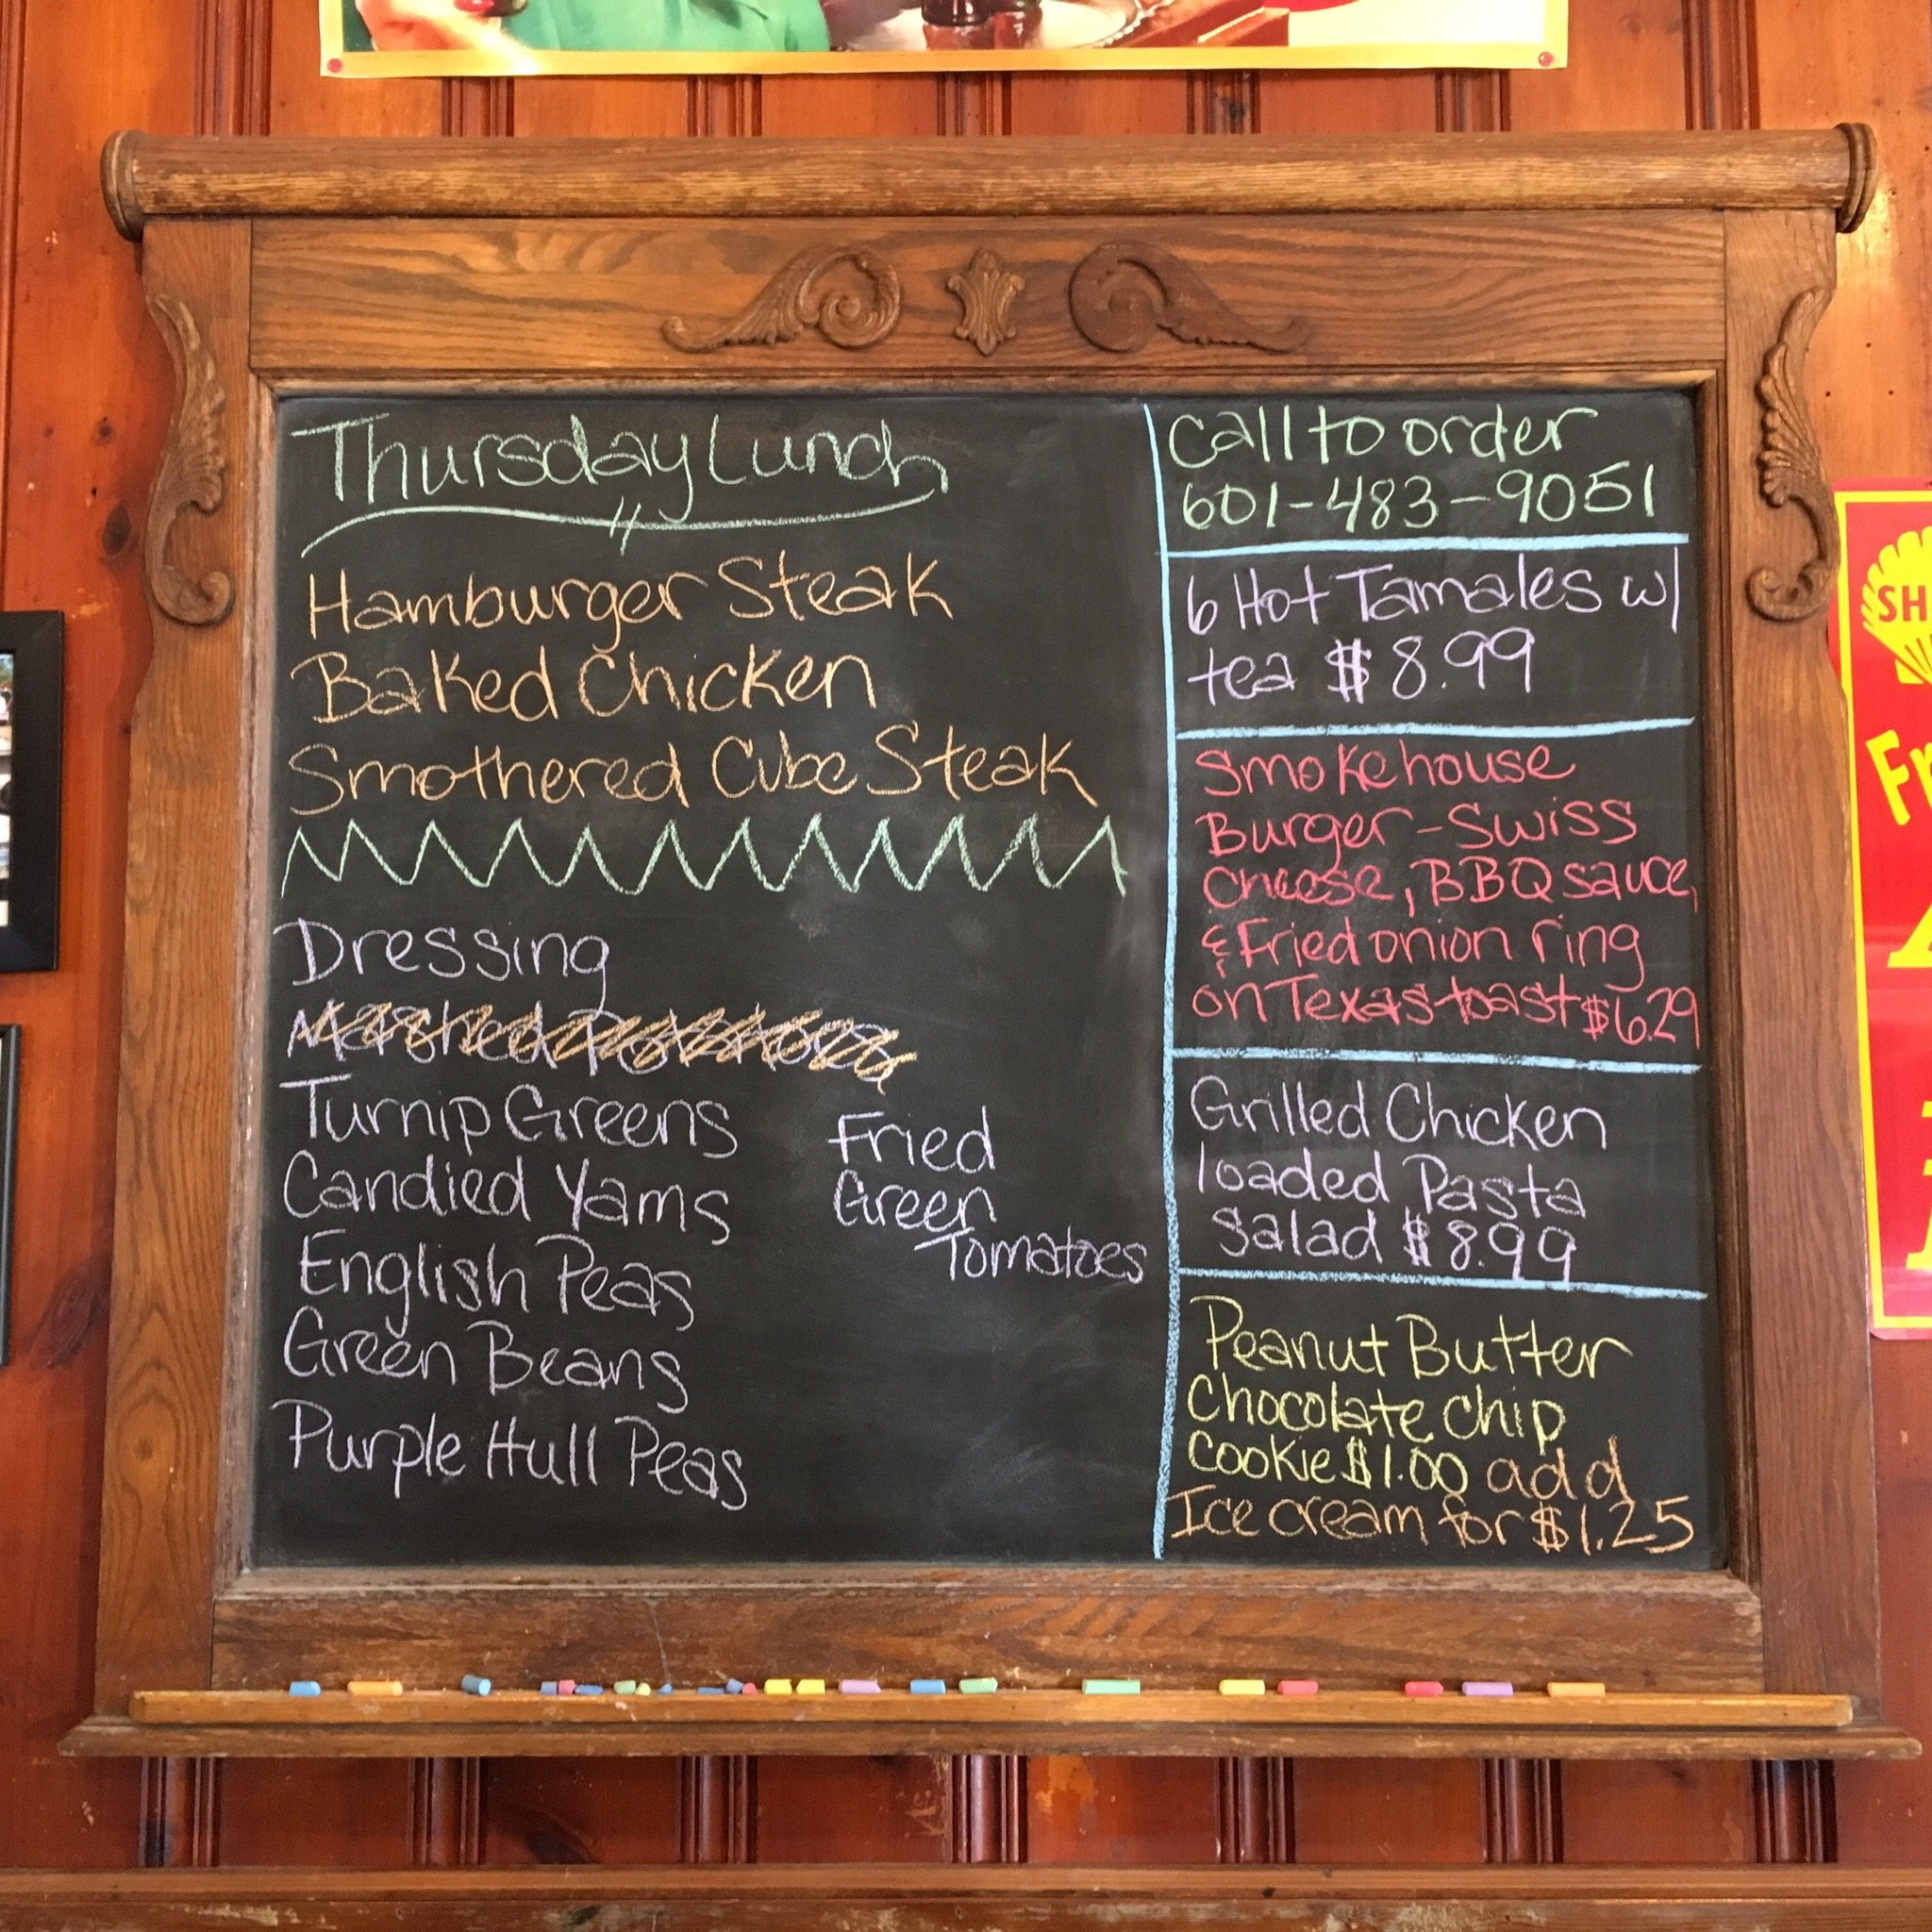 Thursday Lunch
Hamburger Steak
Baked Chicken
Smothered Cube Steak
Dressing
Mashed Potatoes
Turnip Greens
Candied Yams
English Peas
Green Beans
Purple Hull Peas
Fried
Green
Tomatoes
Call to order
601-483-9051
6 Hot Tamales w/
tea $8.99
Smokehouse
Burger - Swiss
Cheese, BBQ sauce,
& Fried onion ring
on Texas toast $6.29
Grilled Chicken
loaded Pasta
Salad $8.99
Peanut Butter
Chocolate Chip
Cookie $1.00 add
Ice cream for $1.25
SH
Fr